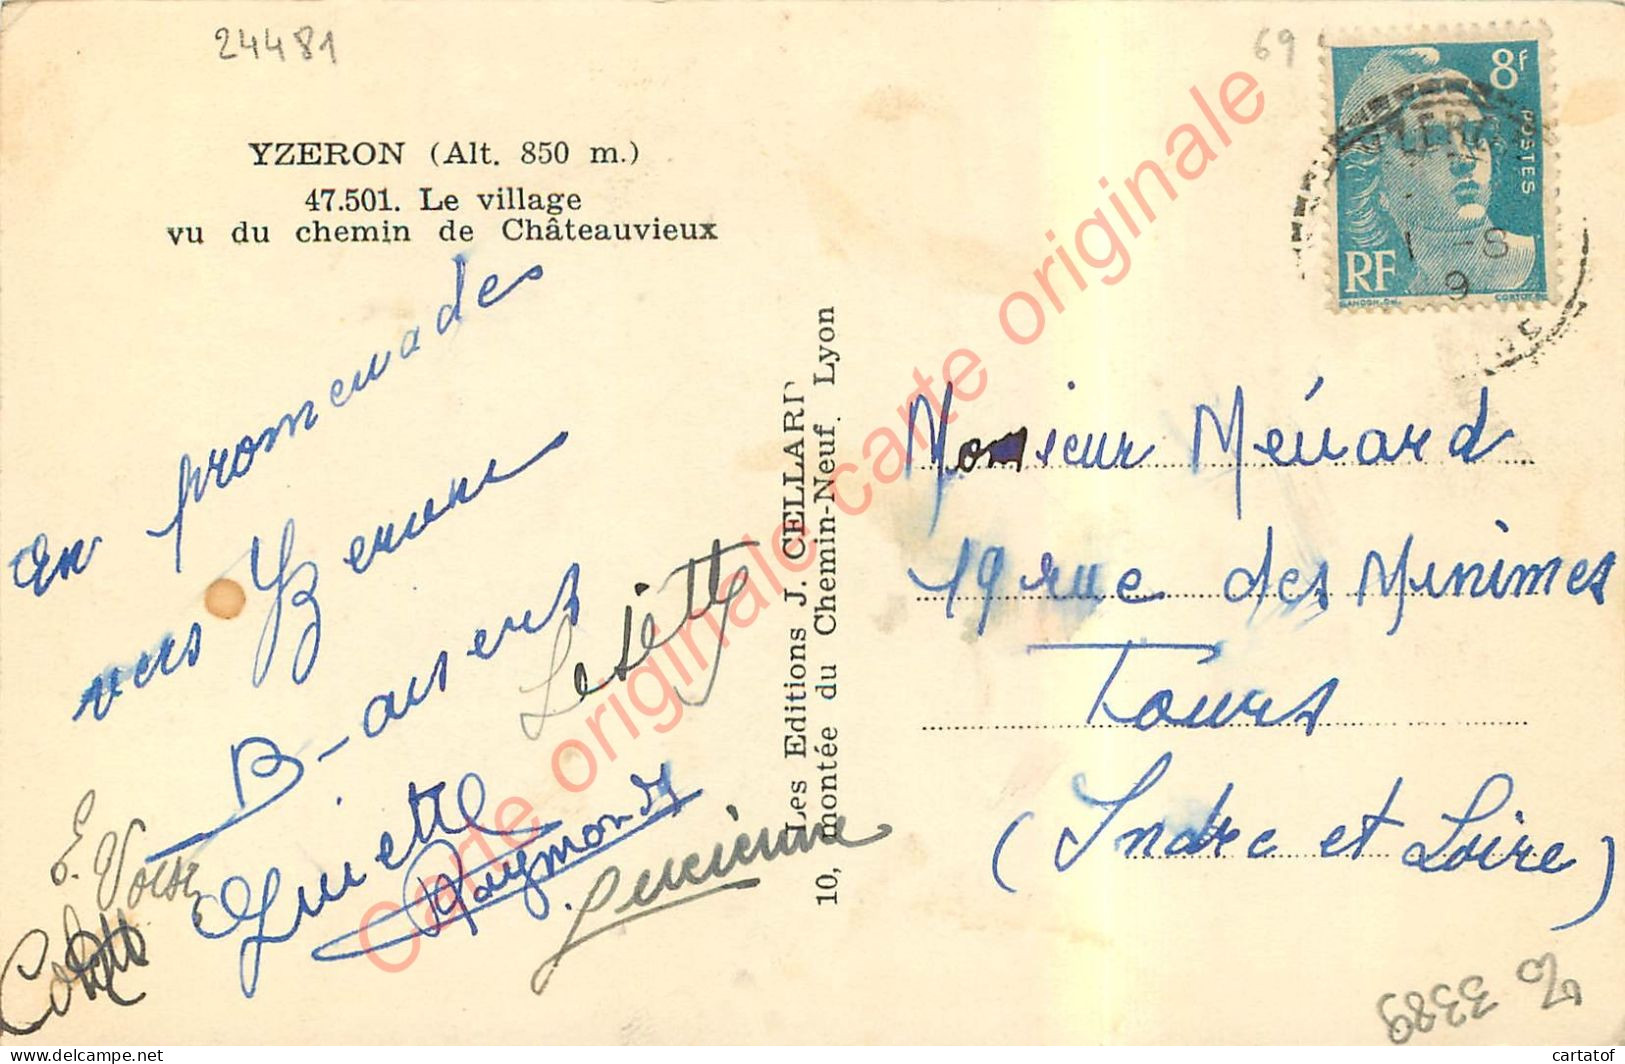 24481
69
YZERON (Alt. 850 m.)
47.501. Le village
vu du chemin de Châteauvieux
8f
POSTES
RF
1 -8
9
En promenades
vers Yzeron
Baisers
Lesette
Raymond
Lucienne
Les Editions J. CELLARD
10, montée du Chemin-Neuf. Lyon
Monsieur Ménard
19 rue des Minimes
Tours
(Indre et Loire)
3389
Carte originale carte originale
cartatof